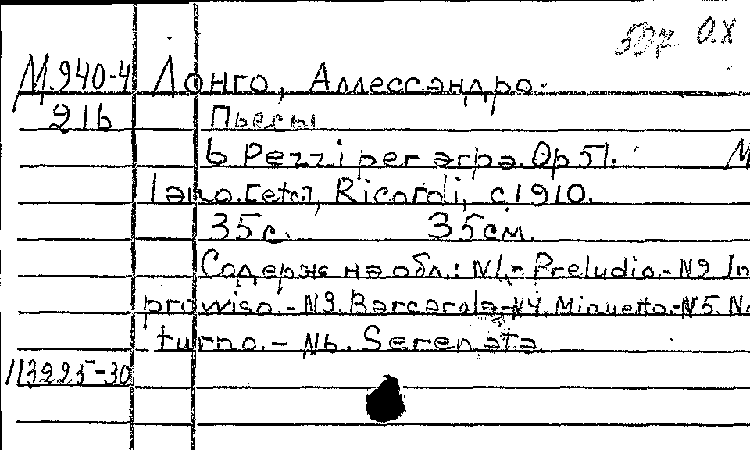 М.940-4 Лонго, Алессандро.
216 Пьесы
6 Pezzi per arpa. Op 51. M
lano. [etc.], Ricordi, c. 1910.
35 с. 35 см.
Содерж на обл.: N1,- Preludio.- N2 In
prowiso.- N3. Barcarola-N4. Minuetto.-N5. No
turno.- N6. Serenata
113225-30